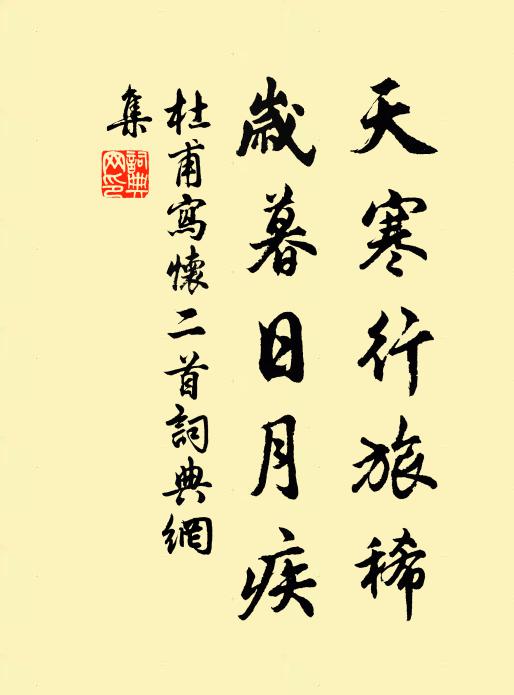 天寒行旅稀
歲暮日月疾
杜甫寫懷二首詞典網
集
詞典網印